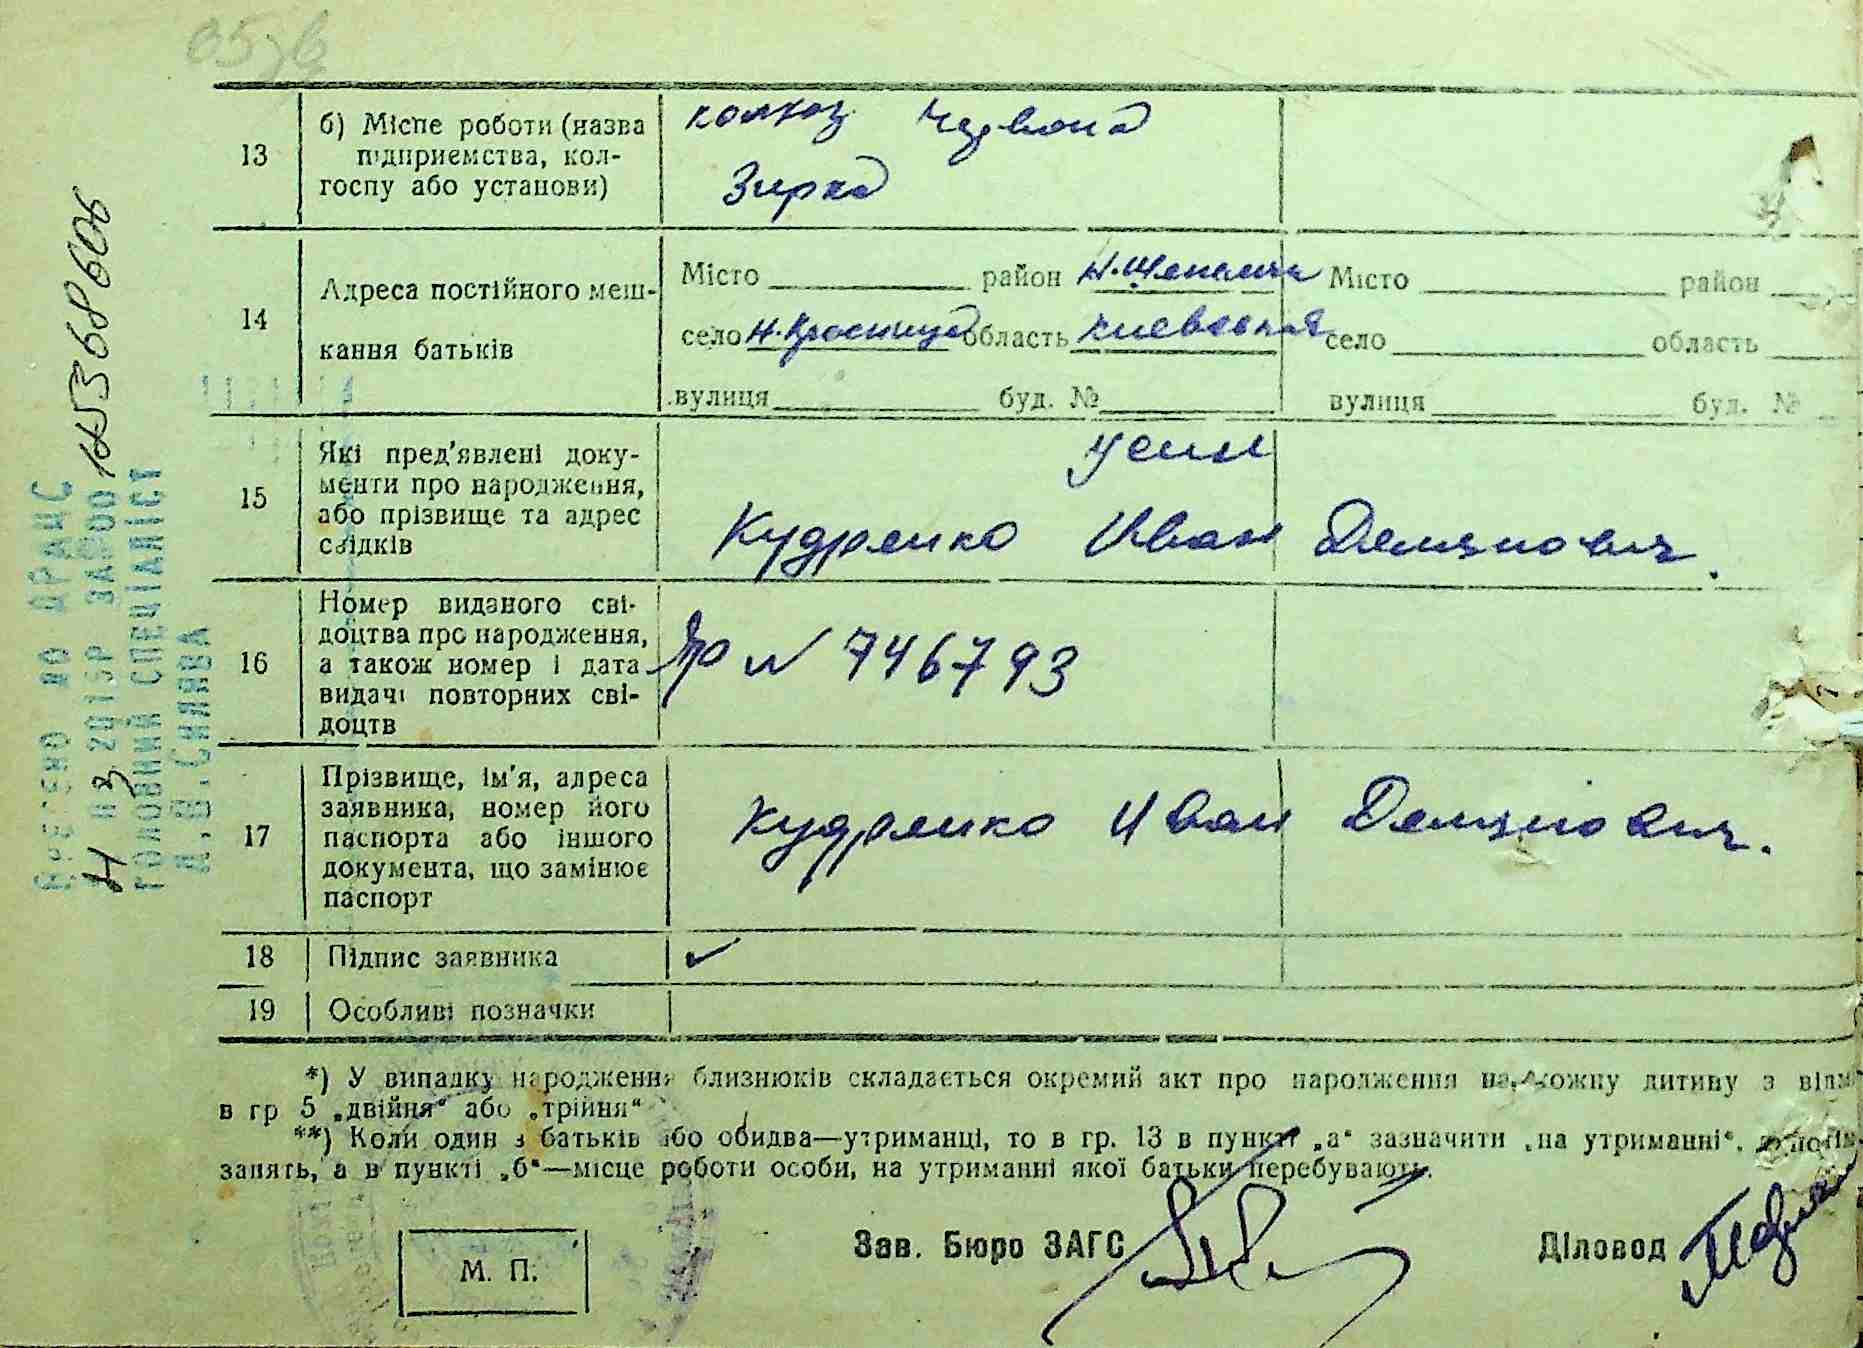 13
б) Місце роботи (назва
підприємства, кол-
госпу або установи)
колхоз Червона
Зирка
14
Адреса постійного меш-
кання батьків
Місто район Місто район
село Н. область Киевская село область
вулиця буд. № вулиця буд. №
15
Які пред'явлені доку-
менти про народження,
або прізвище та адрес
свідків
Кудренко Иван Демянович.
16
Номер виданого сві-
доцтва про народження,
а також номер і дата
видачі повторних сві-
доцтв
№ 746793
17
Прізвище, ім'я, адреса
заявника, номер його
паспорта або іншого
документа, що замінює
паспорт
Кудренко Иван Демянович.
18 Підпис заявника ✓
19 Особливі позначки
*) У випадку народження близнюків складається окремий акт про народження на кожну дитину з відм
в гр 5 „двійня“ або „трійня“
**) Коли один з батьків або обидва—утриманці, то в гр. 13 в пункті „а“ зазначити „на утриманні“,
занять, а в пункті „б“—місце роботи особи, на утриманні якої батьки перебувають.
М. П.
Зав. Бюро ЗАГС
Діловод
Внесено до ДРАЦС
2015Р ЗА №00125368606
ГОЛОВНИЙ СПЕЦІАЛІСТ